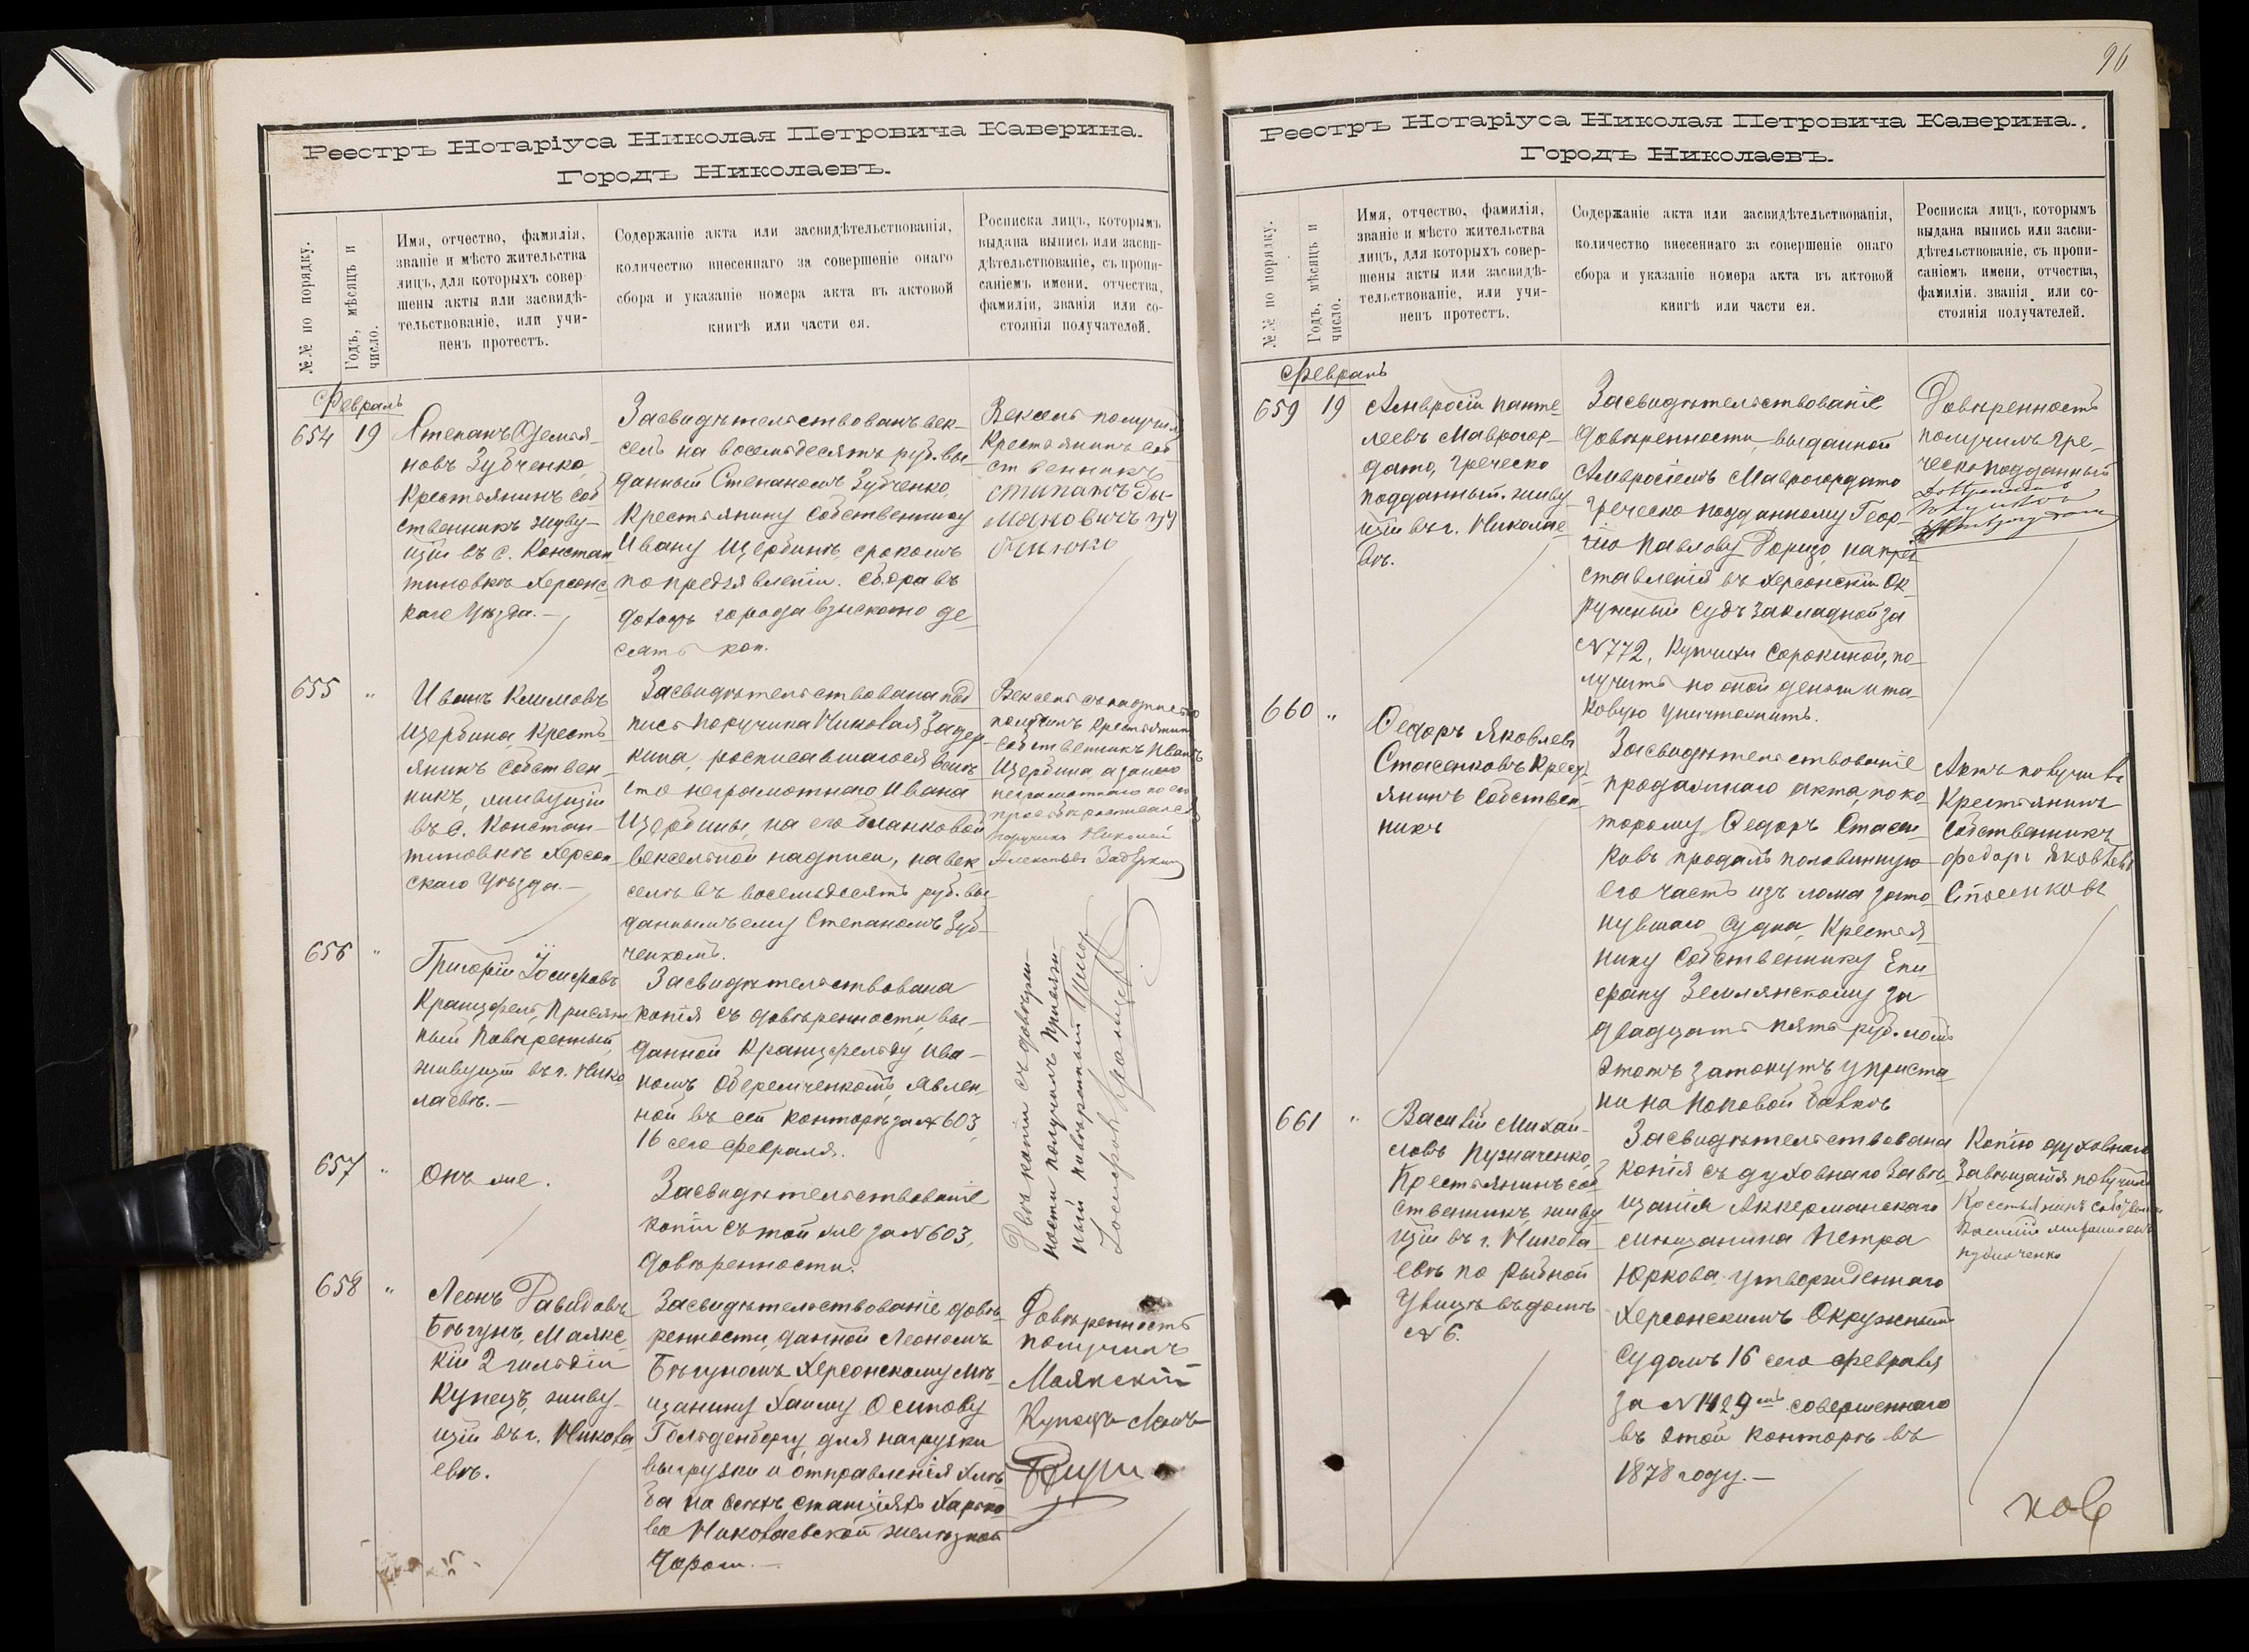 96
Реестръ Нотаріуса Николая Петровича Каверина.
Городъ Николаевъ.
№№ по порядку.
Годъ, мѣсяцъ и
число.
Имя, отчество, фамилія,
званіе и мѣсто жительства
лицъ, для которыхъ совер-
шены акты или засвидѣ-
тельствованіе, или учи-
ненъ протестъ.
Содержаніе акта или засвидѣтельствованія,
количество внесеннаго за совершеніе онаго
сбора и указаніе номера акта въ актовой
книгѣ или части ея.
Росписка лицъ, которымъ
выдана выпись или засви-
дѣтельствованіе, съ пропи-
саніемъ имени, отчества,
фамиліи, званія или со-
стоянія получателей.
Февраль
654 19
Степанъ Демья-
новъ Зубченко,
Крестьянинъ соб
ственникъ живу-
щій въ с. Констан
тиновкѣ Херсонс
каго Уѣзда.—
Засвидѣтельствованъ век-
сель на восемьдесятъ руб. вы-
данный Степаномъ Зубченко,
Крестьянину Собственнику
Ивану Щербинѣ, срокомъ
по предъявленіи. Сбора въ
доходъ города взыскано де-
сять коп.
Вексель получилъ
Крестьянинъ соб
ственникъ
655 "
Иванъ Климовъ
Щербина, Кресть
янинъ Собствен-
никъ, живущій
въ с. Констан-
тиновкѣ Херсон-
скаго Уѣзда.—
Засвидѣтельствована под
пись поручика Николая Задер-
кина, росписавшагося вмѣ
сто неграмотнаго Ивана
Щербины, на его бланковой
вексельной надписи, на век
селѣ въ восемьдесятъ руб. вы-
данномъ ему Степаномъ Зуб-
ченкомъ.
Вексель съ надписью
получилъ Крестьянинъ
Собственникъ Иванъ
Щербина а за него
неграмотнаго по его
просьбѣ росписался
поручикъ Николай
Алексѣевъ Задеркинъ
656 "
Григорій Іосифовъ
Кранцфельдъ, Присяж
ный Повѣренный,
живущій въ г. Нико
лаевѣ.—
Засвидѣтельствована
копія съ довѣренности, вы-
данной Кранцфельду Ива-
номъ Оберемченкомъ, явлен-
ной въ сей конторѣ за № 603,
16 сего февраля.
Двѣ копіи съ довѣрен-
ности получилъ Присяж-
ный повѣренный Григор
Іосифовъ Кранцфельдъ
657 "
Онъ же.
Засвидѣтельствованіе
копіи съ той же за № 603,
довѣренности.
658 "
Леонъ Давидовъ
Бѣгунъ, Маякс
кій 2 гильдіи
Купецъ, живу-
щій въ г. Никола
евѣ.
Засвидѣтельствованіе довѣ
ренности, данной Леономъ
Бѣгуномъ Херсонскому мѣ-
щанину Хаиму Осипову
Гольденбергу, для нагрузки
выгрузки и отправленія хлѣ
ба на всѣхъ станціяхъ Харько
во Николаевской желѣзной
дороги.—
Довѣренность
получилъ
Маякскій
Купецъ Леонъ
Бѣгунъ
Реестръ Нотаріуса Николая Петровича Каверина.
Городъ Николаевъ.
№№ по порядку.
Годъ, мѣсяцъ и
число.
Имя, отчество, фамилія,
званіе и мѣсто жительства
лицъ, для которыхъ совер-
шены акты или засвидѣ-
тельствованіе, или учи-
ненъ протестъ.
Содержаніе акта или засвидѣтельствованія,
количество внесеннаго за совершеніе онаго
сбора и указаніе номера акта въ актовой
книгѣ или части ея.
Росписка лицъ, которымъ
выдана выпись или засви-
дѣтельствованіе, съ пропи-
саніемъ имени, отчества,
фамиліи, званія или со-
стоянія получателей.
Февраль
659 19
Амвросій Панте
леевъ Маврогор-
дато, Греческо
подданный, живу-
щій въ г. Николае
вѣ.
Засвидѣтельствованіе
довѣренности, выданной
Амвросіемъ Маврогордато
Греческо подданному Геор-
гію Павлову Доридо, на пред
ставленія въ Херсонскій Ок
ружный Судъ закладной за
№ 772, Купчихи Сорокиной, по-
лучить по оной деньги и та-
ковую уничтожить.
Довѣренность
получилъ гре-
ческоподданный
660 "
Федоръ Яковлевъ
Стасенковъ Кресть
янинъ Собствен-
никъ
Засвидѣтельствованіе
продажнаго акта, по ко-
торому Федоръ Стасен
ковъ продалъ половинную
его часть изъ лома зато-
нувшаго судна, Крестья-
нину Собственнику Епи-
фану Землянскому за
двадцать пять руб. ломъ
этотъ затонутъ у приста
ни на Поповой балкѣ
Актъ получилъ
Крестьянинъ
Собственникъ
Федоръ Яковлевъ
Стасенковъ
661 "
Василій Михай-
ловъ Пузначенко,
Крестьянинъ соб
ственникъ, живу
щій въ г. Никола-
евѣ по Рыбной
Улицѣ въ домѣ
№ 6.
Засвидѣтельствована
копія съ духовнаго завѣ-
щанія Аккерманскаго
мѣщанина Петра
Юркова, утвержденнаго
Херсонскимъ Окружнымъ
Судомъ 16 сего февраля
за № 1429 мъ совершеннаго
въ этой конторѣ въ
1878 году.—
Копію духовнаго
Завѣщанія получилъ
Крестьянинъ собственникъ
Василій
ков